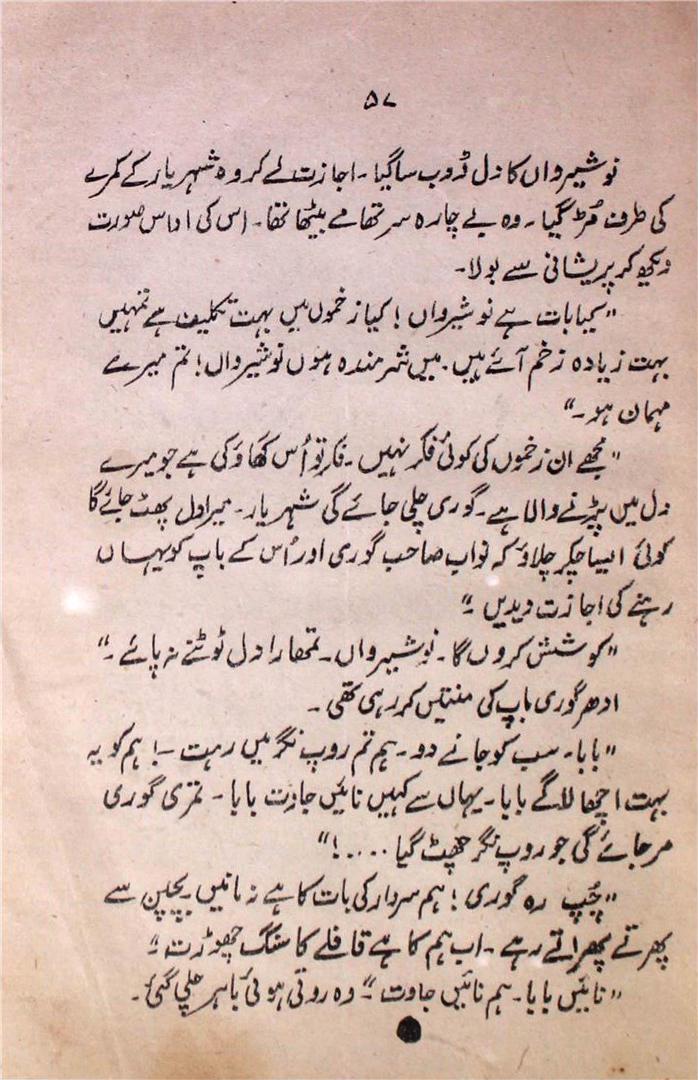 ۵۷
نوشیرواں کا دل ڈوب سا گیا۔ اجازت لے کر وہ شہریار کے کمرے
کی طرف مُڑ گیا۔ وہ بے چارہ سر تھامے بیٹھا تھا۔ اس کی اداس صورت
دیکھ کر پریشانی سے بولا۔
"کیا بات ہے نوشیرواں! کیا زخموں میں بہت تکلیف ہے تمہیں
بہت زیادہ زخم آئے ہیں۔ میں شرمندہ ہوں نوشیرواں! تم میرے
مہمان ہو۔"
"مجھے ان زخموں کی کوئی فکر نہیں۔ فکر تو اُس گھاؤ کی ہے جو میرے
دل میں پڑنے والا ہے۔ گوری چلی جائے گی شہریار۔ میرا دل پھٹ جائے گا
کوئی ایسا چکر چلاؤ کہ نواب صاحب گوری اور اُس کے باپ کو یہاں
رہنے کی اجازت دیدیں۔"
"کوشش کروں گا۔ نوشیرواں۔ تمھارا دل ٹوٹنے نہ پائے۔"
ادھر گوری باپ کی منتیں کر رہی تھی۔
"بابا۔ سب کو جانے دو۔ ہم تم روپ نگر میں رہت۔! ہم کو یہ
بہت اچھا لاگے بابا۔ یہاں سے کہیں نائیں جاوت بابا۔ تمری گوری
مر جائے گی جو روپ نگر چھٹ گیا....!"
"چُپ رہ گوری! ہم سردار کی بات کا ہے نہ مانیں بچپن سے
پھرتے پھراتے رہے۔ اب ہم کا ہے قافلے کا سنگ چھوڑت۔"
"نائیں بابا۔ ہم نائیں جاوت۔" وہ روتی ہوئی باہر چلی گئی۔